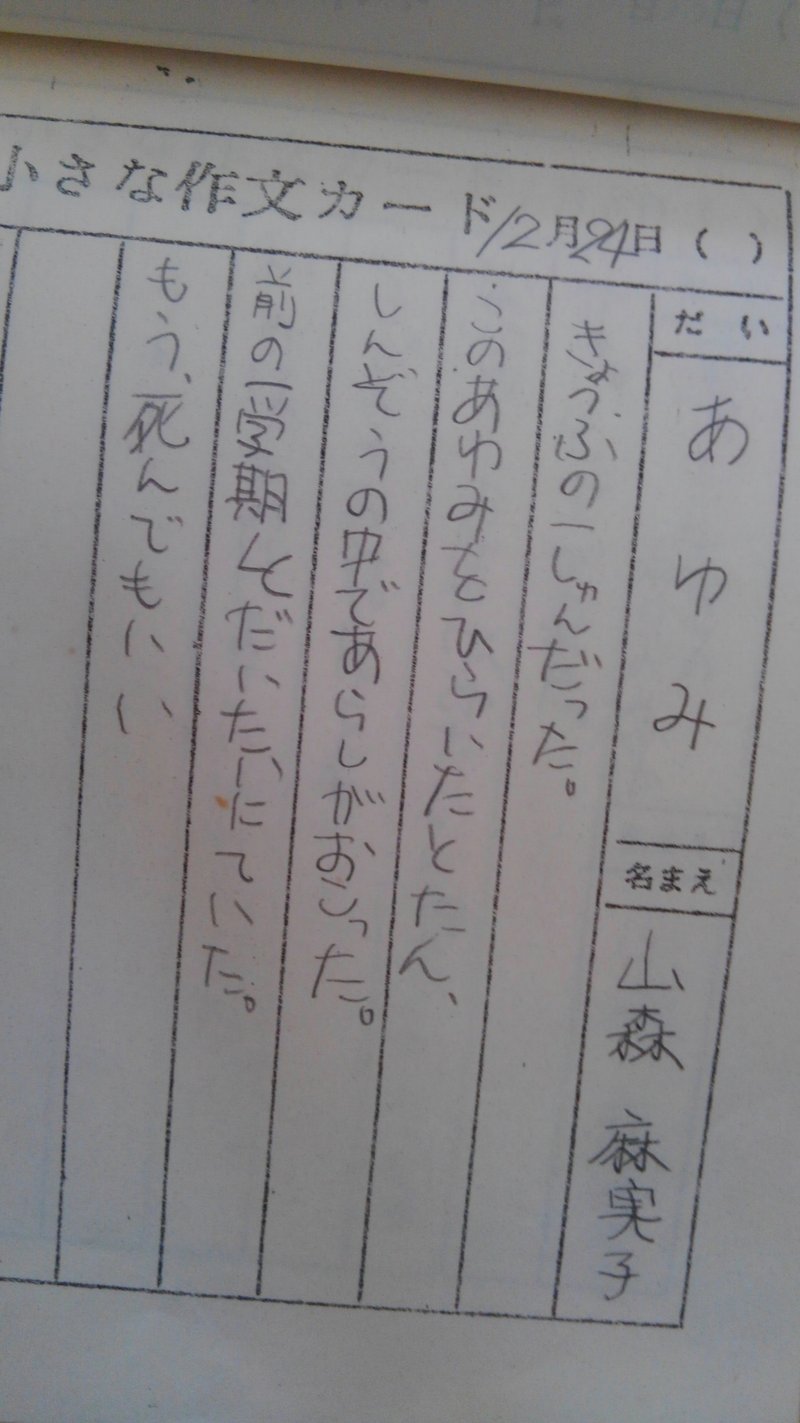 小さな作文カード 12月24日( )
だい あゆみ 名まえ 山森 麻実子
きょうふの一しゅんだった。
このあゆみをひらいたとたん、
しんぞうの中であらしがおこった。
前の一学期とだいたいにていた。
もう、死んでもいい